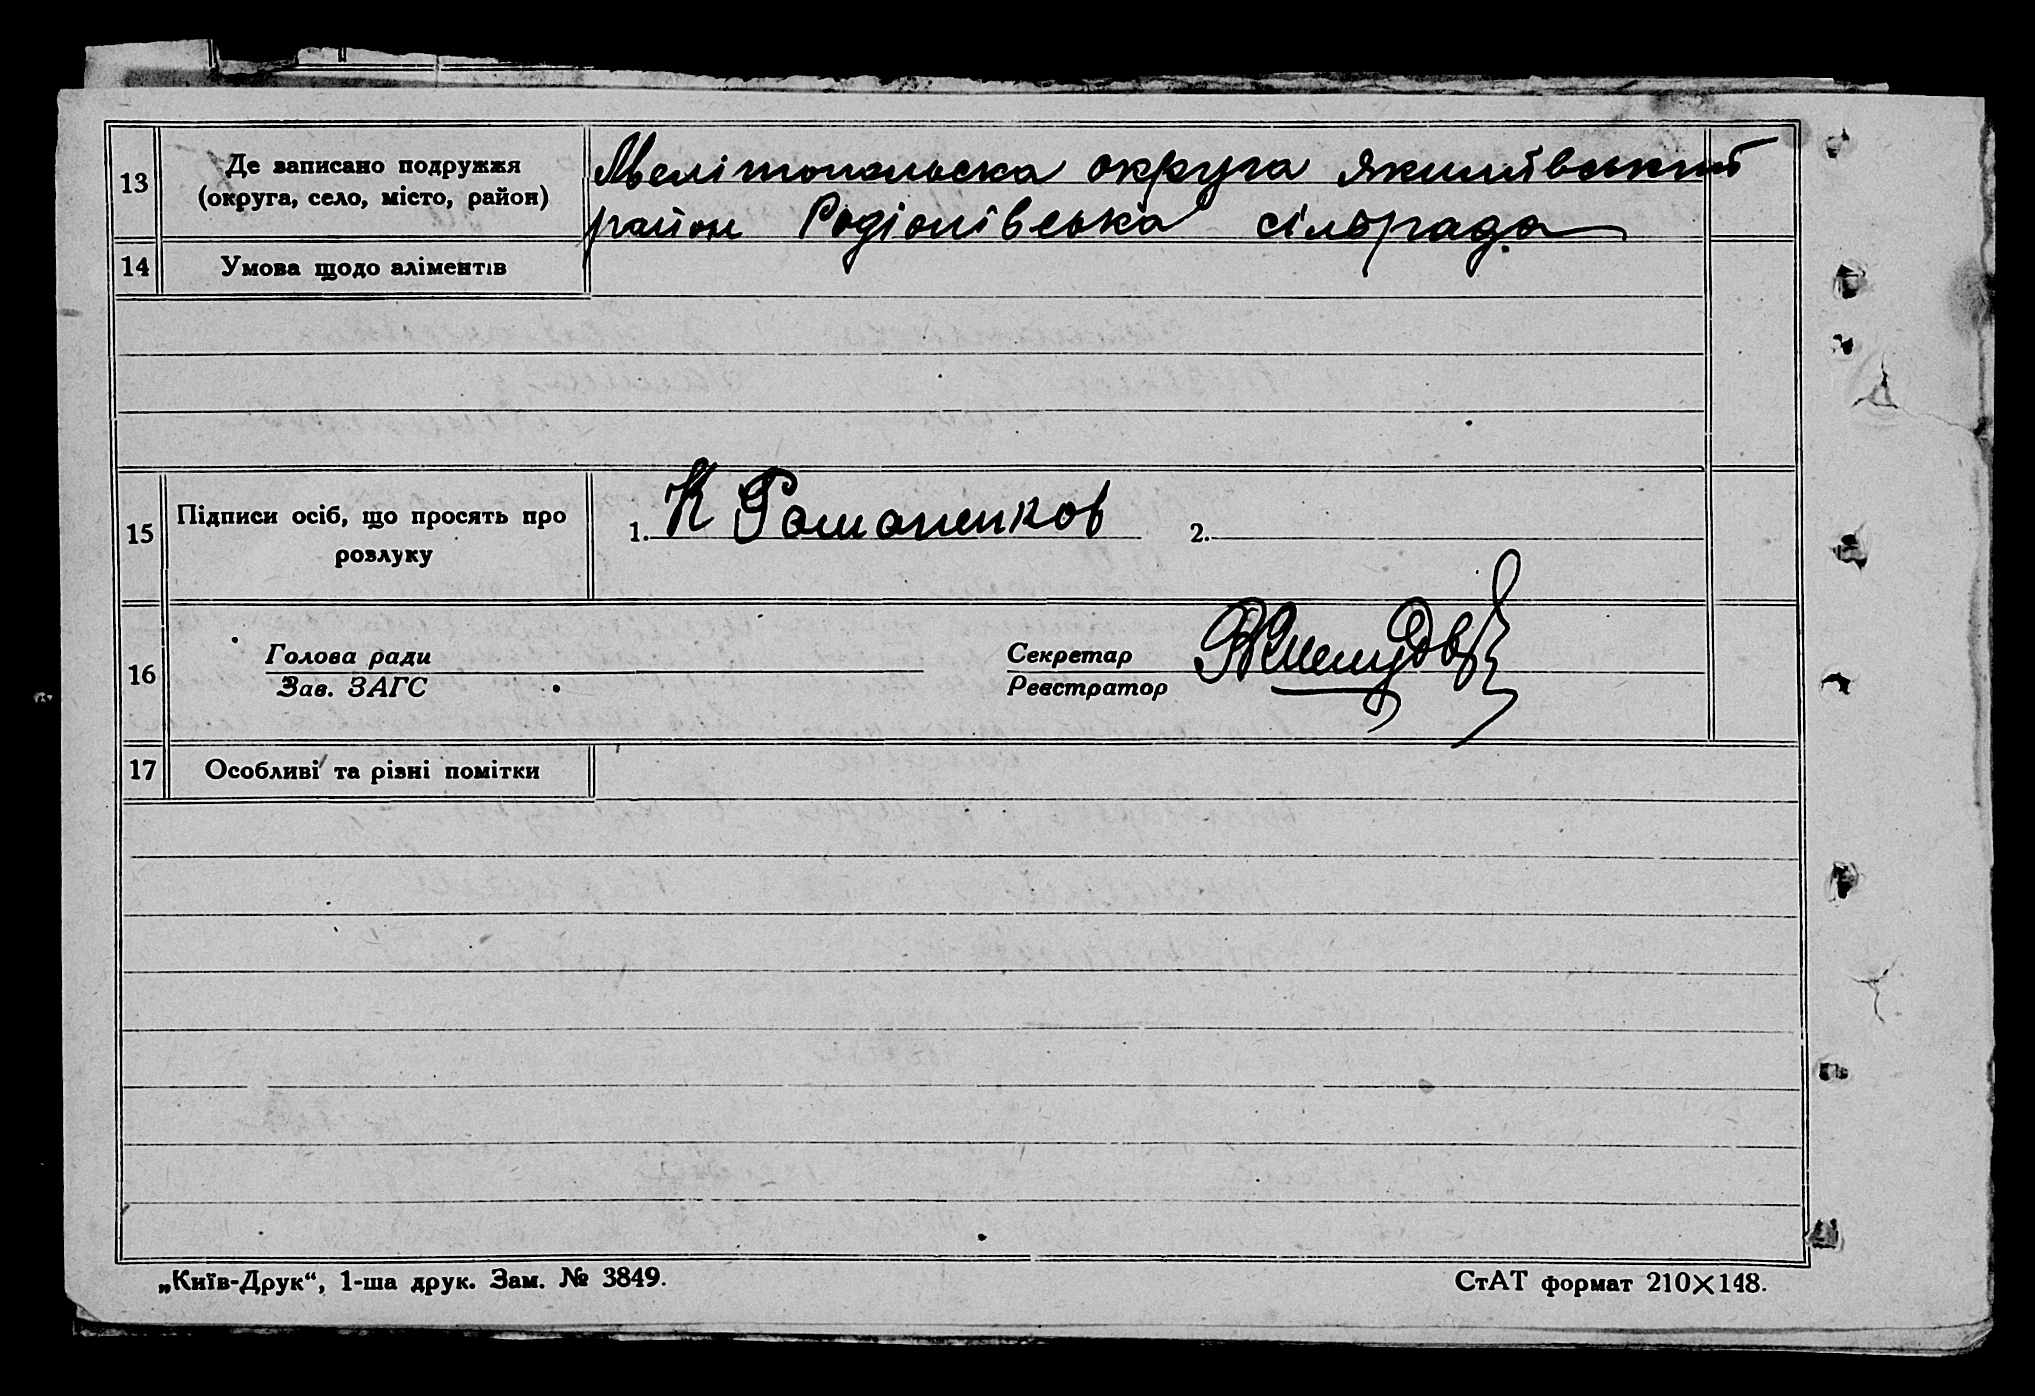 13
Де записано подружжя
(округа, село, місто, район)
Мелітопольска округа Якимівський
район Родіонівська сільрада
14
Умова щодо аліментів
15
Підписи осіб, що просять про
розлуку
1. К Романенков
2.
16
Голова ради
Зав. ЗАГС
Секретар
Реєстратор
17
Особливі та різні помітки
„Київ-Друк“, 1-ша друк. Зам. № 3849.
СтАТ формат 210×148.